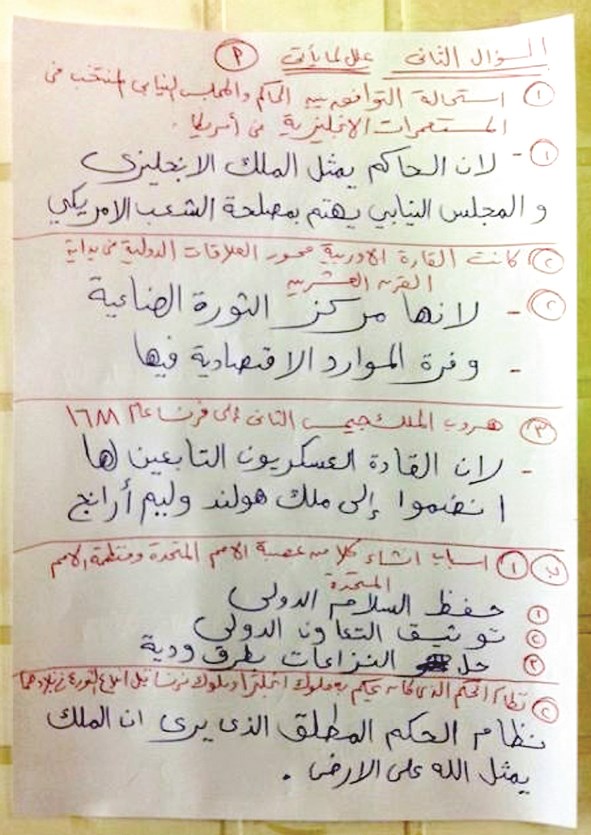 السؤال الثانى علل لما يأتى (٢)
(١) استحالة التوافق بين الحاكم والمجلس النيابي المنتخب فى
المستعمرات الانجليزية فى أمريكا .
(١) - لان الحاكم يمثل الملك الانجليزى
و المجلس النيابي يهتم بمصلحة الشعب الامريكي
(٢) كانت القارة الاوربية محور العلاقات الدولية فى بداية
القرن العشرين
(٢) - لانها مركز الثورة الصناعية
- وفرة الموارد الاقتصادية فيها
(٣) هروب الملك جيمس الثانى إلى فرنسا عام ١٦٨٨
- لان القادة العسكريون التابعين لها
انضموا إلى ملك هولند وليم أرانج
(ب) (١) اسباب انشاء كلا من عصبة الامم المتحدة ومنظمة الامم
المتحدة
(١) حفظ السلام الدولى
(٢) توثيق التعاون الدولى
(٣) حل النزاعات بطرق ودية
(٢) نظام الحكم الذى كان يحكم به ملوك انجلترا وملوك فرنسا قبل اندلاع الثورة فى بلادهما
نظام الحكم المطلق الذى يرى ان الملك
يمثل الله على الارض .